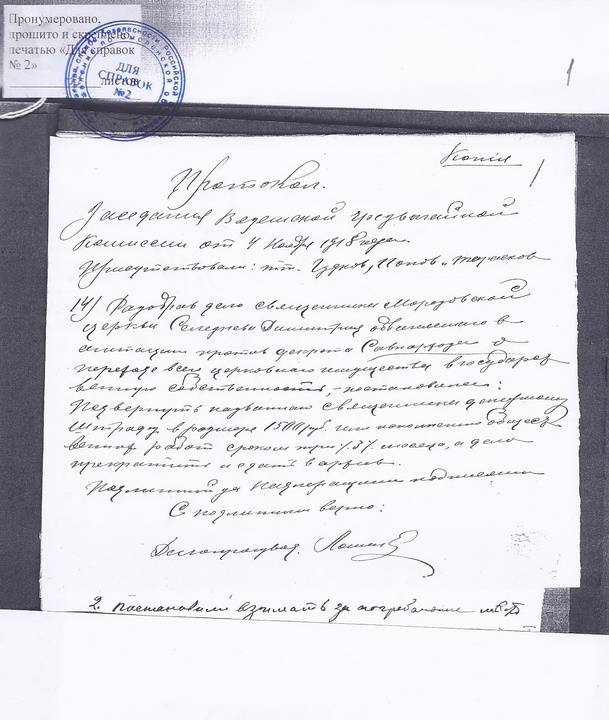 Пронумеровано,
прошито и скреплено
печатью «Для справок
№ 2»
листов
ДЛЯ
СПРАВОК
№2
1
Копія
Протокол.
Заседания Вяземской чрезвычайной
Комиссии от 4 ноября 1918 года.
Присутствовали: тт. Гудков, Попов и Тарасков
14) Разобрав дело священника Мородовской
церкви Селезнева Димитрия обвиняемого в
агитации против декрета Совнаркома о
переходе всего церковного имущества в государст
венную собственность, - постановлено:
Подвергнуть названнаго священника денежному
штрафу в размере 1500 руб. или исполнению общест
венных работ сроком три /3/ месяца, а дело
прекратить и сдать в архив.
Подлинной за надлежащими подписями
С подлинным верно:
Делопроизвод.
2. Постановили взымать за погребение